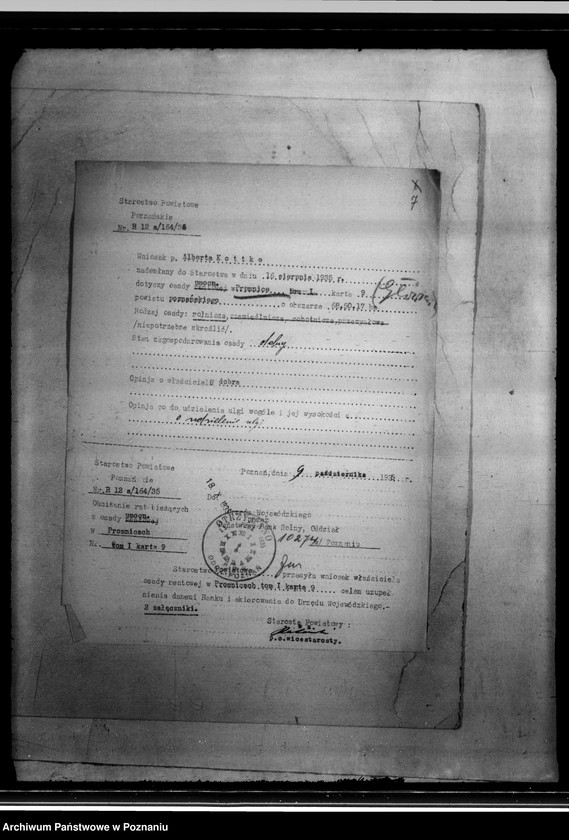 7
Starostwo Powiatowe
Poznańskie
Nr. R 12 a/164/35
Wniosek p. Alberta Kottke
nadesłany do Starostwa w dniu 16 sierpnia 1935 r.
dotyczy osady w tom I karta 9
powiatu poznańskiego o obszarze 68,60,17 ha
Rodzaj osady: rolnicza, rzemieślnicza, robotnicza, przemysłowa
/niepotrzebne skreślić/.
Stan zagospodarowania osady dobry
Opinja o właścicielu dobra
Opinja co do udzielenia ulgi wogóle i jej wysokości
o udzielenie ulgi
Starostwo Powiatowe
Poznańskie
Nr. R 12 a/164/35
Poznań, dnia 9 października 1935 r.
Do
Urzędu Wojewódzkiego
Państwowy Bank Rolny, Oddział
w Poznaniu
10274
Obniżenie rat bieżących
z osady
w Promnicach
Nr. tom I karta 9
OTRZYMANO
ODDZ. POZNAŃ
Starostwo Powiatowe przesyła wniosek właściciela
osady rentowej w Promnicach tom I karta 9 celem uzupeł
nienia danemi Banku i skierowania do Urzędu Wojewódzkiego.-
2 załączniki.
Starosta Powiatowy :
p.o.wicestarosty.
Archiwum Państwowe w Poznaniu